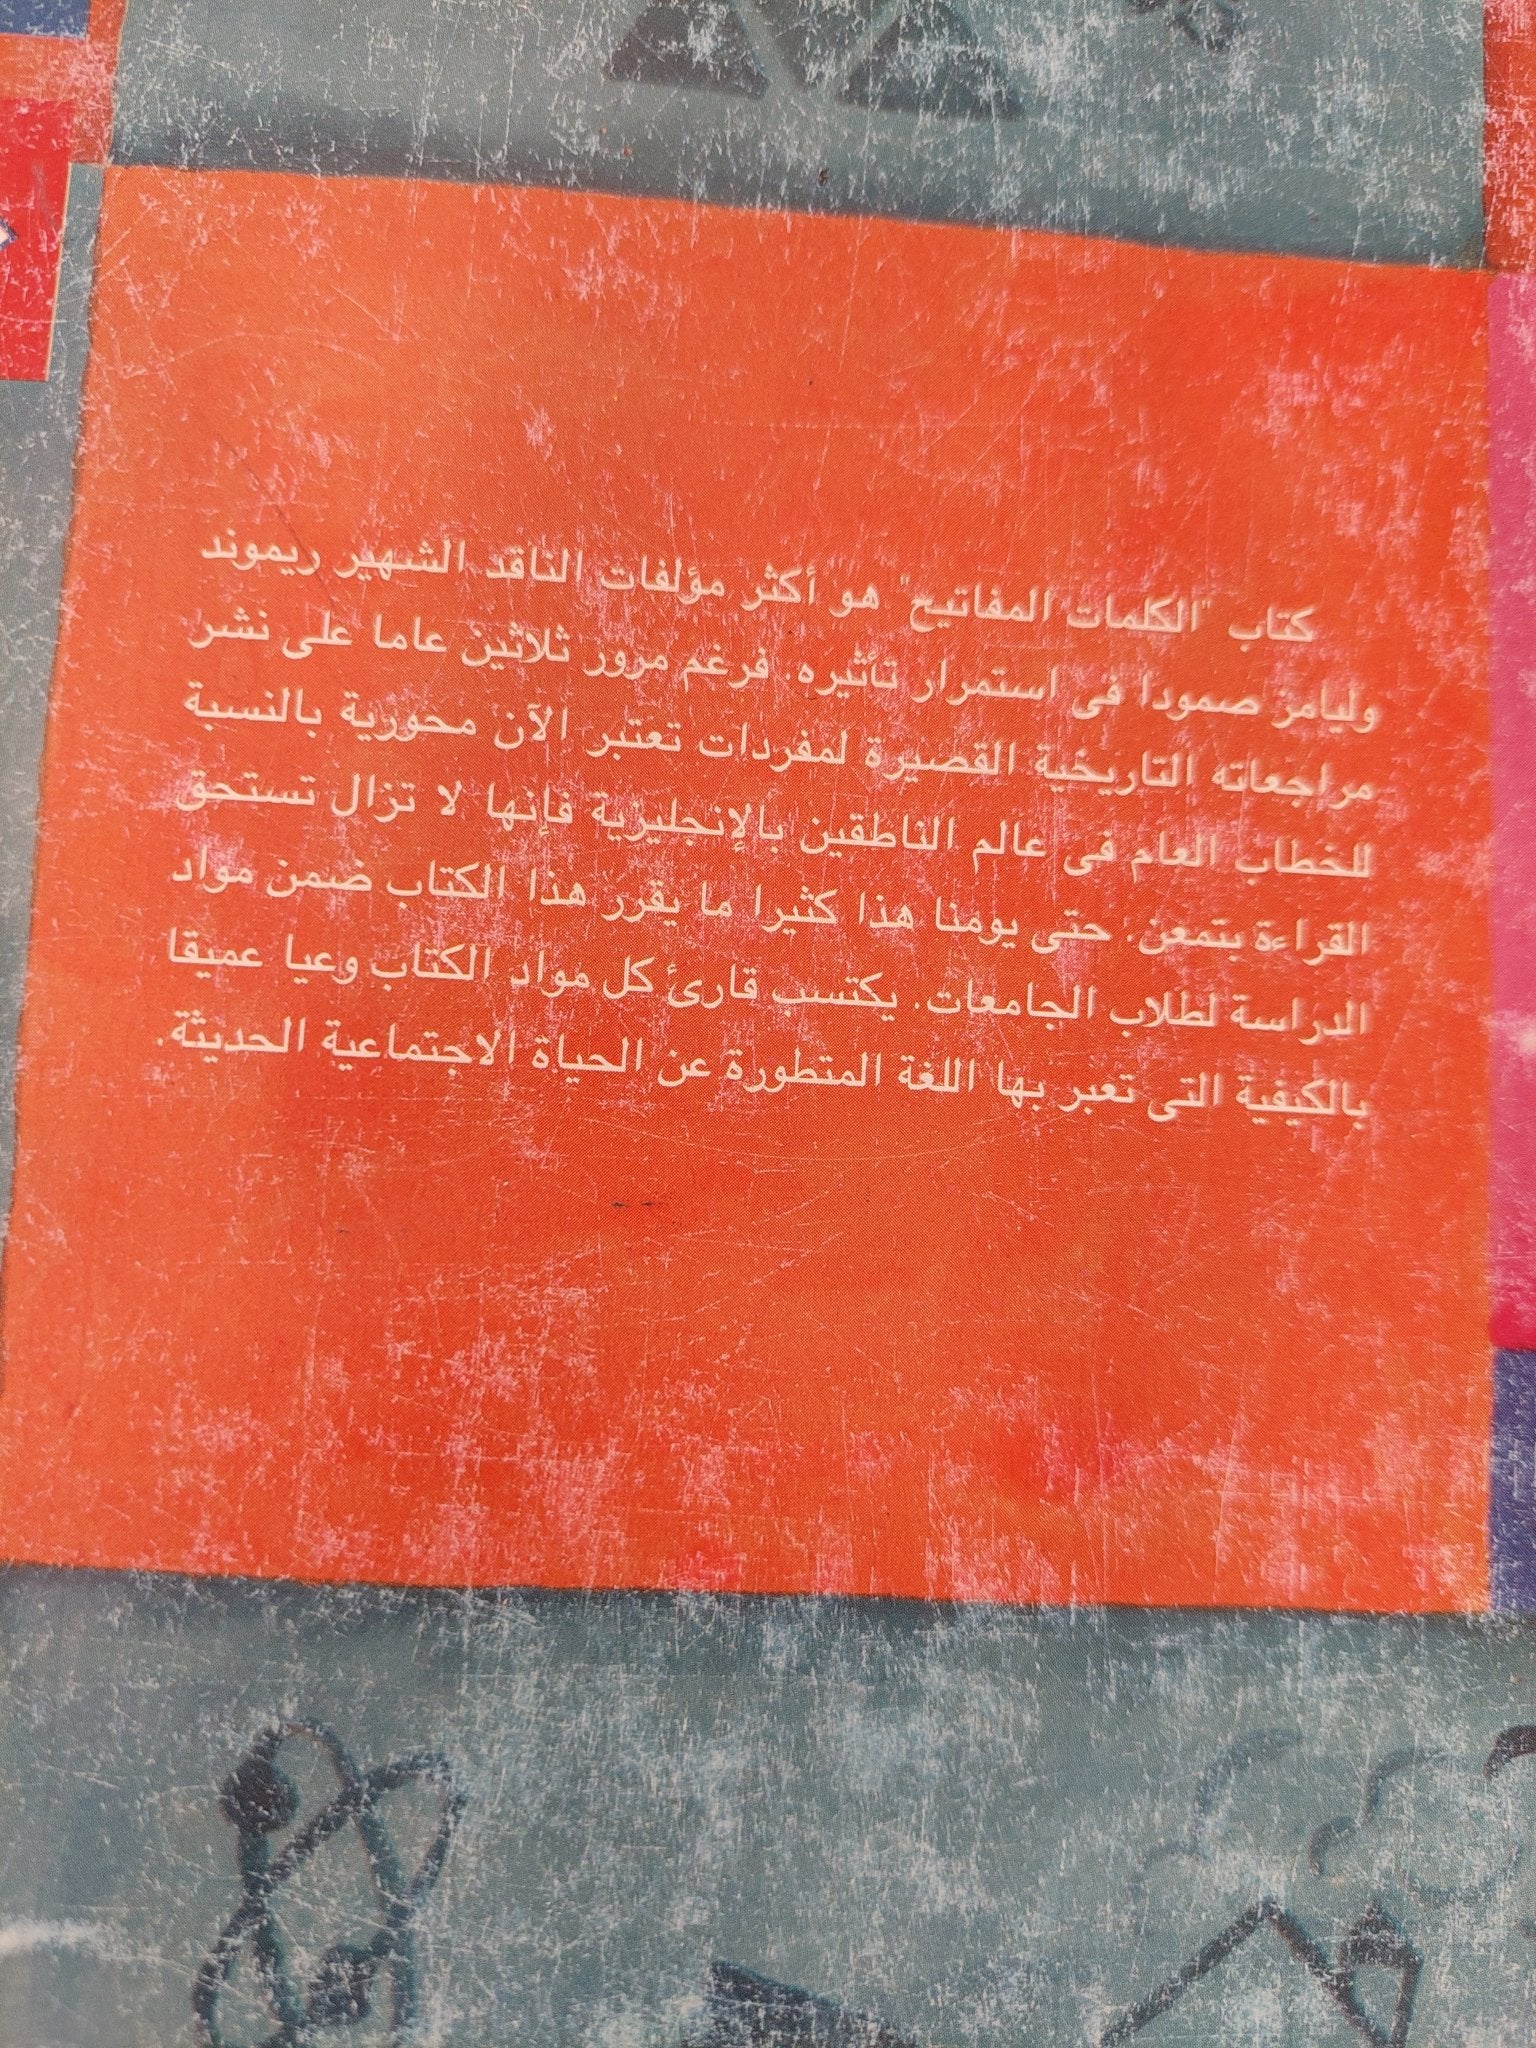 كتاب "الكلمات المفاتيح" هو أكثر مؤلفات الناقد الشهير ريموند
وليامز صمودا فى استمرار تأثيره. فرغم مرور ثلاثين عاما على نشر
مراجعاته التاريخية القصيرة لمفردات تعتبر الآن محورية بالنسبة
للخطاب العام فى عالم الناطقين بالإنجليزية فإنها لا تزال تستحق
القراءة بتمعن. حتى يومنا هذا كثيرا ما يقرر هذا الكتاب ضمن مواد
الدراسة لطلاب الجامعات. يكتسب قارئ كل مواد الكتاب وعيا عميقا
بالكيفية التى تعبر بها اللغة المتطورة عن الحياة الاجتماعية الحديثة.